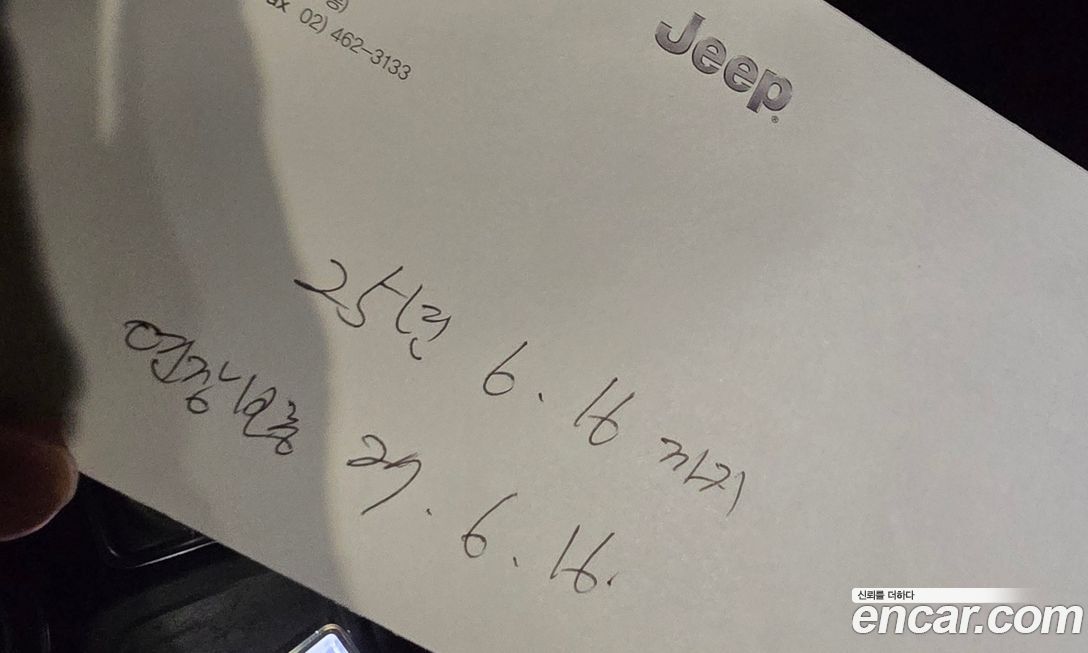 02) 462-3133
Jeep
25년 6. 16 까지
연장보증 27. 6. 16.
신뢰를 더하다
encar.com